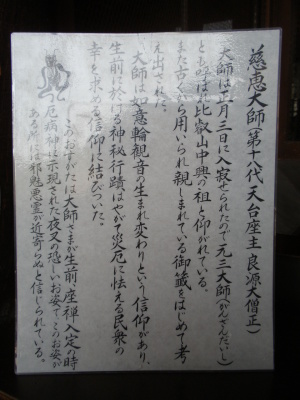 慈恵大師(第十八代天台座主 良源大僧正)
大師は正月三日に入寂せられたので元三大師(がんざんだいし)
とも呼ばれ比叡山中興の祖と仰がれている。
また古くから用いられ親しまれている御籤をはじめて考
え出された。
大師は如意輪観音の生まれ変わりという信仰があり、
生前に於ける神秘行蹟はやがて災厄に怯える民衆の
幸を求める信仰に結びついた。
このおすがたは大師さまが生前、座禅入定の時
厄病神に示現された夜叉の恐しいお姿で、このお姿が
あるところには邪魅悪霊が近寄らぬと信じられている。